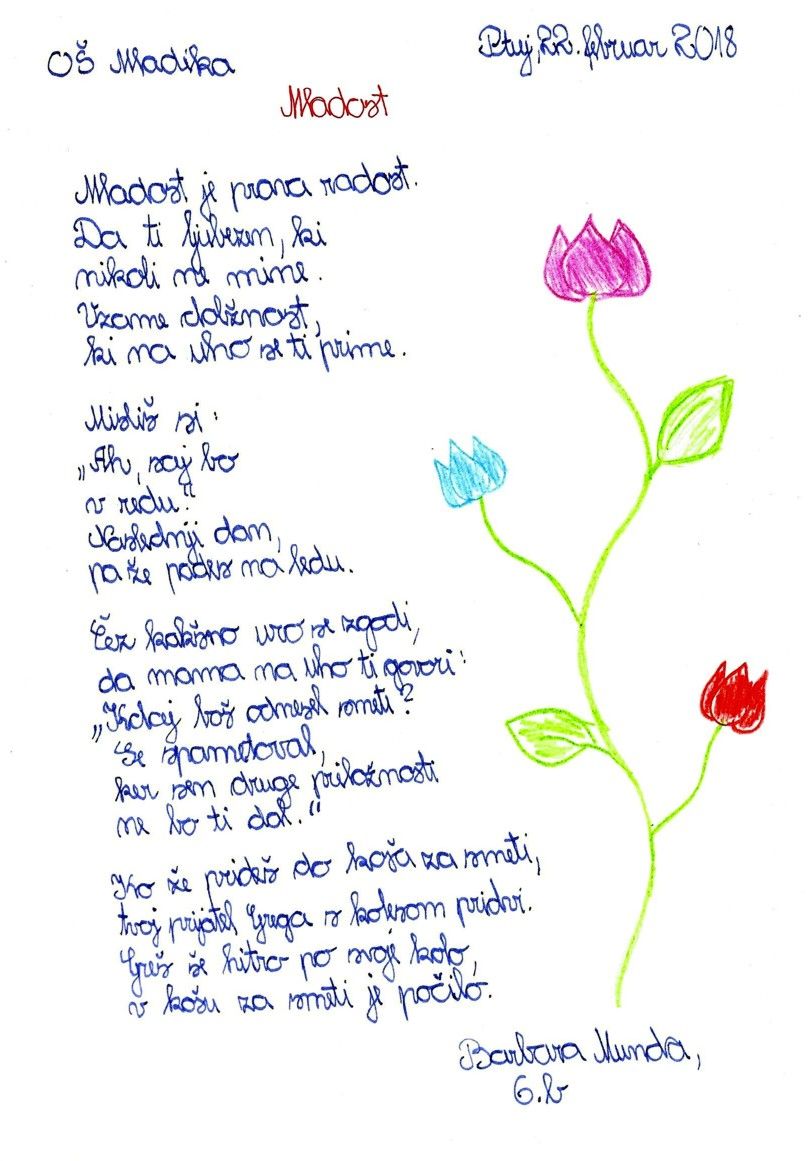 OŠ Mladika
Ptuj, 22. februar 2018
Mladost
Mladost je prava radost.
Da ti ljubezen, ki
nikoli ne mine.
Vzame dolžnost,
ki na uho se ti prime.
Misliš si:
„Ah, saj bo
v redu.“
Naslednji dan,
pa že padeš na ledu.
Čez kakšno uro se zgodi,
da mama na uho ti govori:
„Kdaj boš odnesel smeti?
Se spametoval,
ker sen druge priložnosti
ne bo ti dal.“
Ko že prideš do koša za smeti,
tvoj prijatel Grega s kolesom pridrvi.
Greš še hitro po svoje kolo,
v košu za smeti je počilo.
Barbara Munda,
6.b